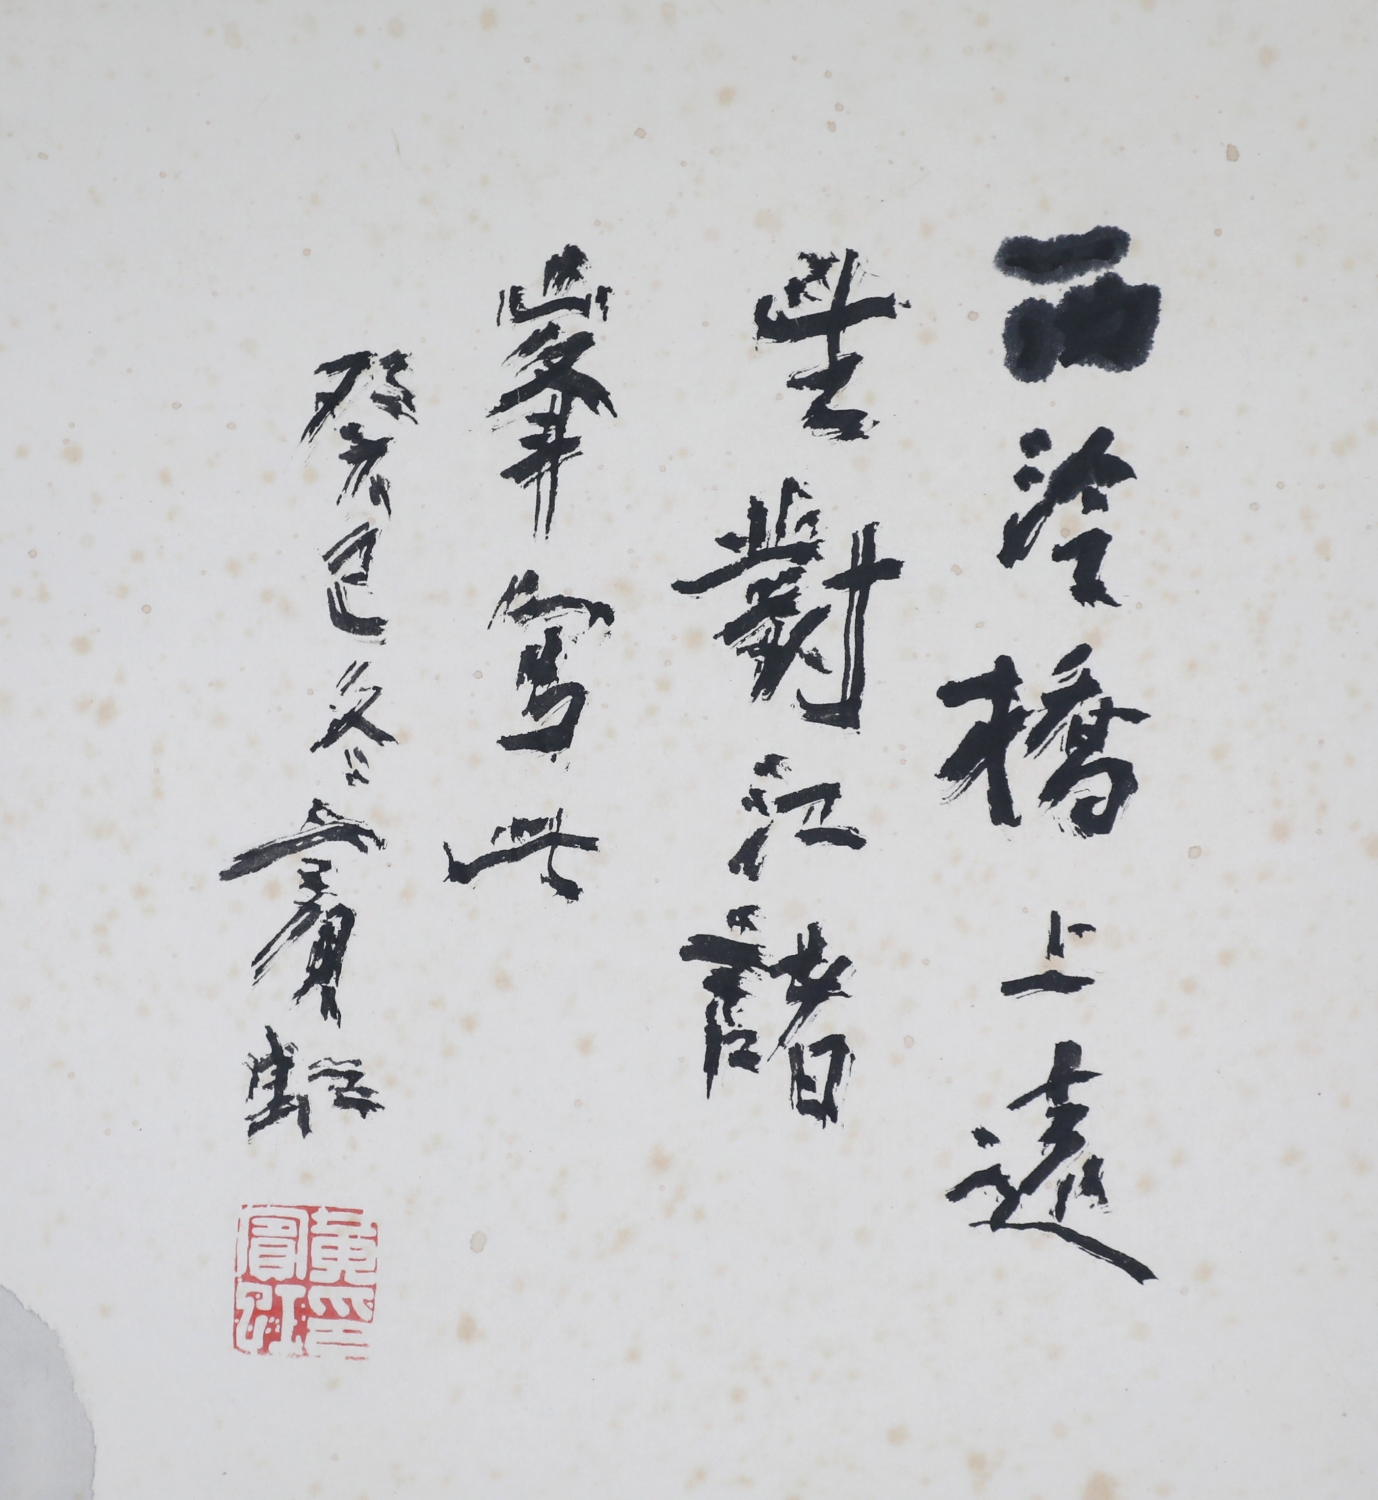 西泠橋上遠
望對江諸
峯寫此
癸巳冬賓虹
黃賓虹印